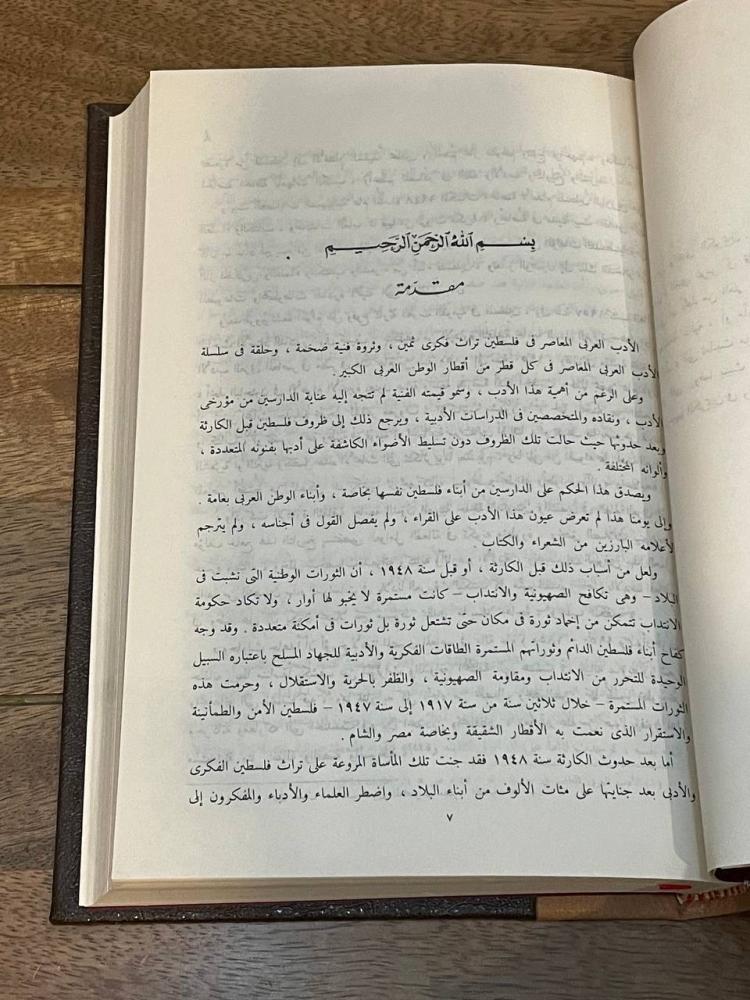 بسم الله الرحمن الرحيم
مقدمة
الأدب العربى المعاصر فى فلسطين تراث فكرى ثمين ، وثروة فنية ضخمة ، وحلقة فى سلسلة
الأدب العربى المعاصر فى كل قطر من أقطار الوطن العربى الكبير .
وعلى الرغم من أهمية هذا الأدب ، وسمو قيمته الفنية لم تتجه إليه عناية الدارسين من مؤرخى
الأدب ، ونقاده والمتخصصين فى الدراسات الأدبية ، ويرجع ذلك إلى ظروف فلسطين قبل الكارثة
وبعد حدوثها حيث حالت تلك الظروف دون تسليط الأضواء الكاشفة على أدبها بفنونه المتعددة ،
وألوانه المختلفة .
ويصدق هذا الحكم على الدارسين من أبناء فلسطين نفسها بخاصة ، وأبناء الوطن العربى بعامة .
وإلى يومنا هذا لم تعرض عيون هذا الأدب على القراء ، ولم يفصل القول فى أجناسه ، ولم يترجم
لأعلامه البارزين من الشعراء والكتاب .
ولعل من أسباب ذلك قبل الكارثة ، أو قبل سنة ١٩٤٨ ، أن الثورات الوطنية التى نشبت فى
البلاد – وهى تكافح الصهيونية والانتداب – كانت مستمرة لا يخبو لها أوار ، ولا تكاد حكومة
الانتداب تتمكن من إخماد ثورة فى مكان حتى تشتعل ثورة بل ثورات فى أمكنة متعددة . وقد وجه
كفاح أبناء فلسطين الدائم وثوراتهم المستمرة الطاقات الفكرية والأدبية للجهاد المسلح باعتباره السبيل
الوحيدة للتحرر من الانتداب ومقاومة الصهيونية ، والظفر بالحرية والاستقلال ، وحرمت هذه
الثورات المستمرة – خلال ثلاثين سنة من سنة ١٩١٧ إلى سنة ١٩٤٧ – فلسطين الأمن والطمأنينة
والاستقرار الذى نعمت به الأقطار الشقيقة وبخاصة مصر والشام .
أما بعد حدوث الكارثة سنة ١٩٤٨ فقد جنت تلك المأساة المروعة على تراث فلسطين الفكرى
والأدبى بعد جنايتها على مئات الألوف من أبناء البلاد ، واضطر العلماء والأدباء والمفكرون إلى
٧